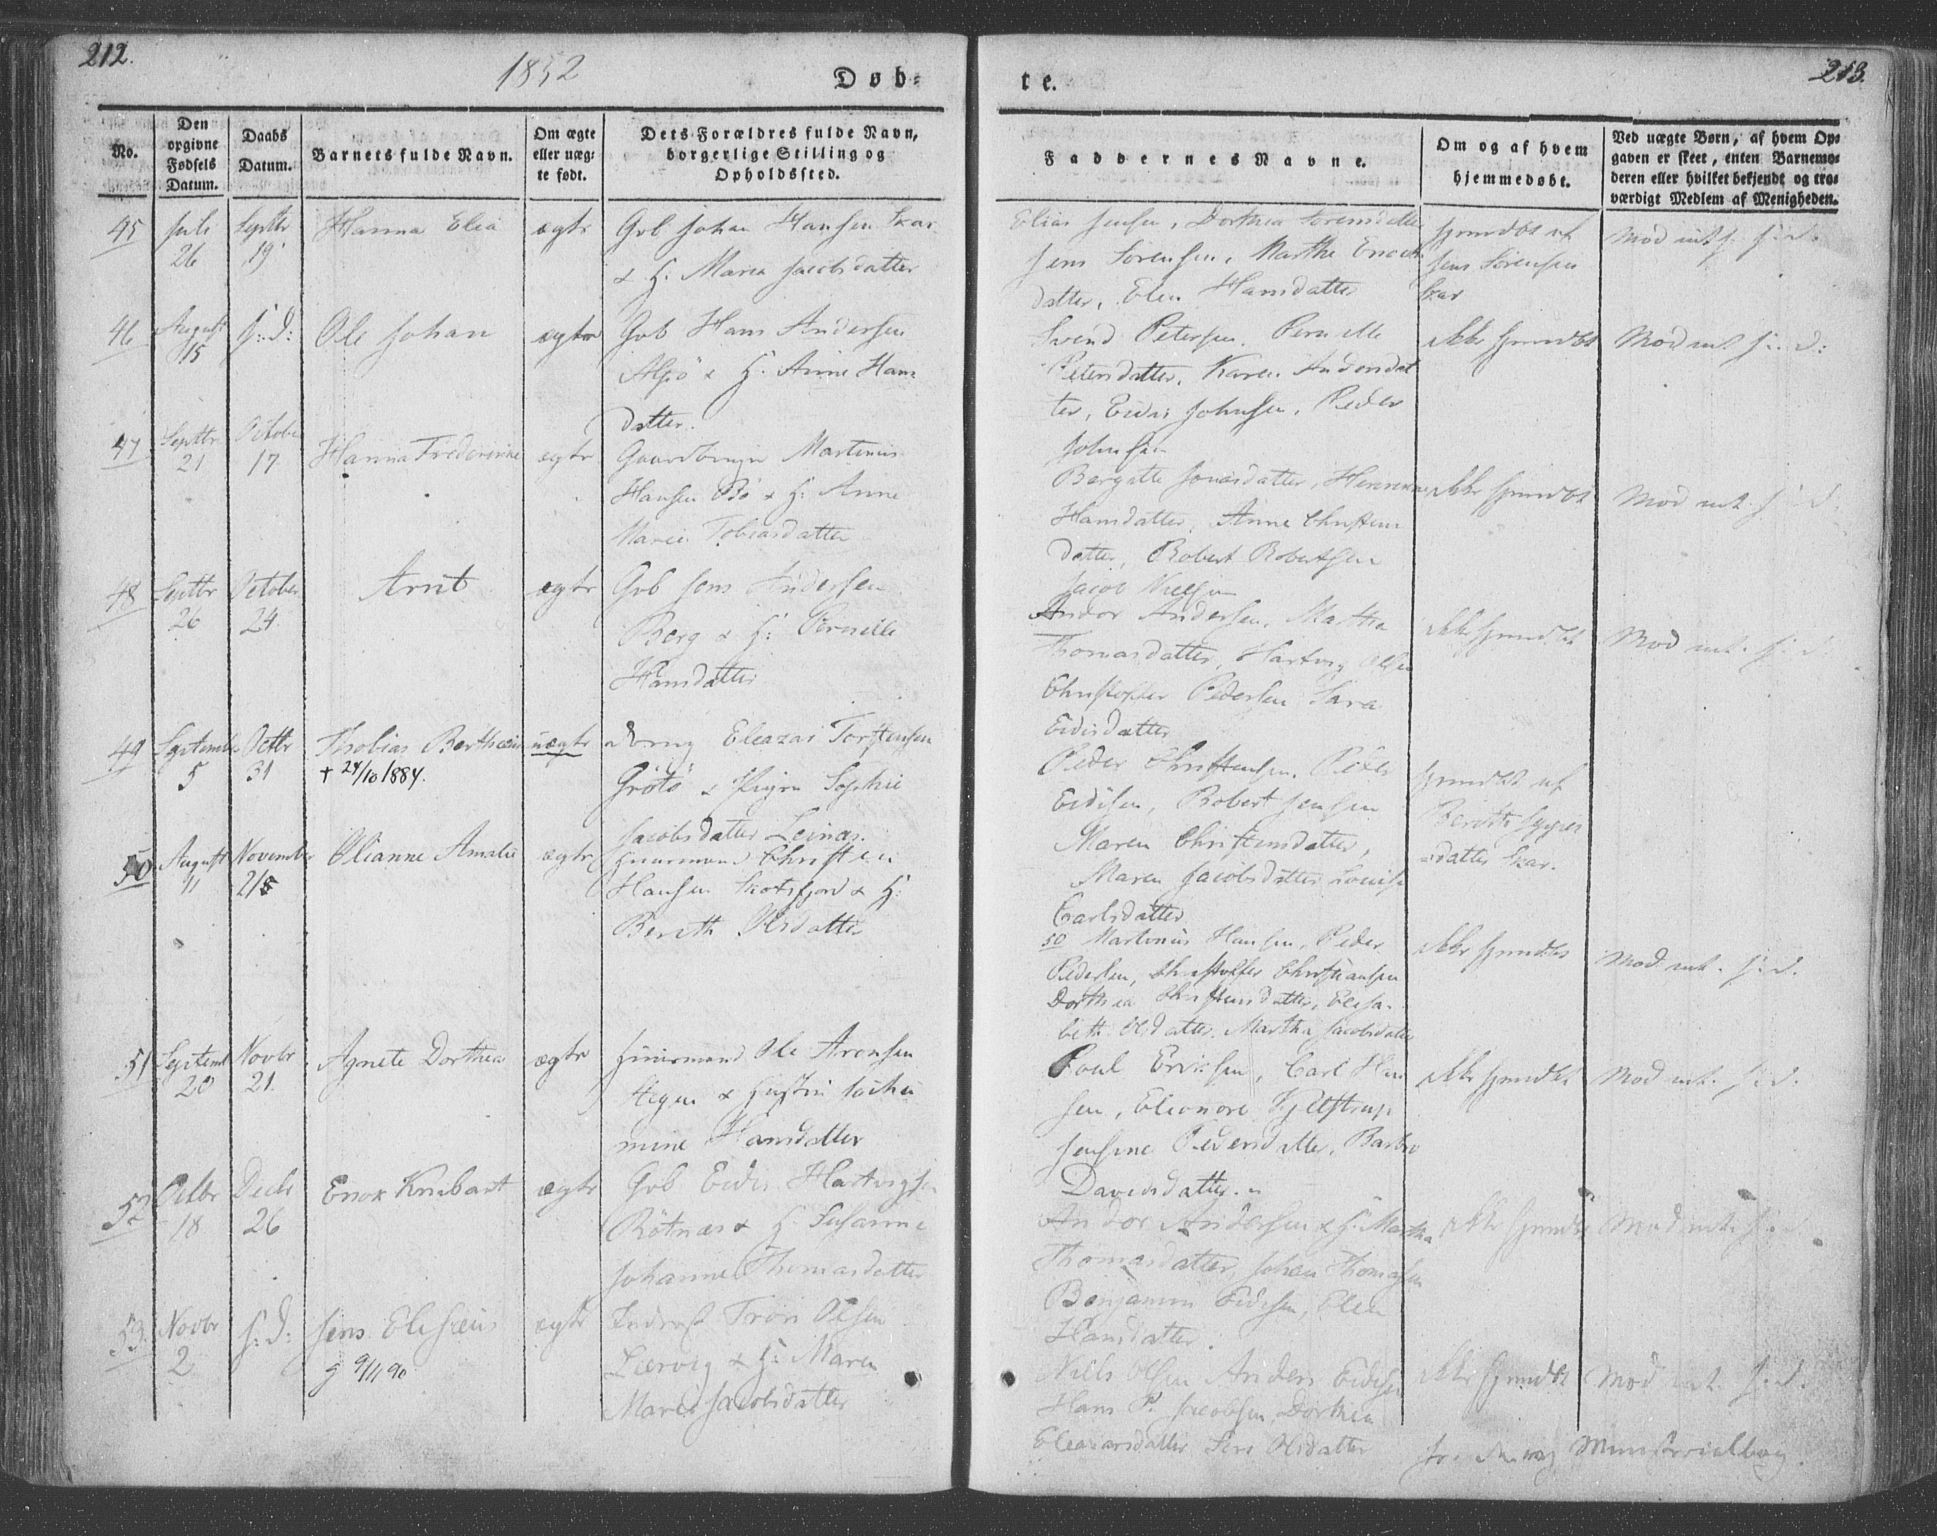 212.
1852
Døb-
te.
213.
No.
Den
opgivne
Fødsels
Datum.
Daabs
Datum.
Barnets fulde Navn.
Om ægte
eller uæg-
te født.
Dets Forældres fulde Navn,
borgerlige Stilling og
Opholdssted.
Faddernes Navne.
Om og af hvem
hjemmedøbt.
Ved uægte Børn, af hvem Op-
gaven er skeet, enten Barnemo-
deren eller hvilket bekjendt og tro-
værdigt Medlem af Menigheden.
45
Juli
26
Septbr
19
Hanna Elea
ægte
Gb Johan Hansen Skar
& H. Maren Jacobsdatter
Elias Jensen, Dorthea Sørensdatter
Jens Sørensen, Marthe Enoch
datter, Elen Hansdatter
hjemdbt af
Jens Sørensen
Skar
46
August
15
s: d:
Ole Johan
ægte
Gb Hans Andersen
& H. Anne Hans
datter.
Svend Petersen, Pernelle
Petersdatter, Karen Andersdat
ter, Eidis Johnsen, Peder
Johnsen
ikke hjemdbt
47
Septbr
21
October
17
Hanna Frederikke
ægte
Martinus
Hansen Bø & H. Anne
Marie Tobiasdatter
Bergitte Jonasdatter,
Hansdatter, Anne Christens
datter, Robert Robertsen
Jacob Nielsen
ikke hjemdbt
48
Septbr
26
October
24
Arnt
ægte
Gb Jens Andersen
Berg & H. Pernelle
Hansdatter
Andor Andersen, Martha
Thomasdatter, Hartvig Olsen
Christopher Pedersen Sara
Eidisdatter
ikke hjemdbt
49
September
5
Octbr
31
Thobias Berthæus
† 24/10 1884.
uægte
Eleazar Torstensen
Grötö & Pigen Sophie
Jacobsdatter Leines.
Peder Christensen, Peter
Eidisen, Robert Jensen
Maren Christensdatter,
Maren Jacobsdatter Lovise
Carlsdatter
hjemdbt af
Berith
datter Skar.
50
August
11
November
21
Olianne Amalie
ægte
Huusmand Christen
Hansen Skotsfjord & H.
Berith Olsdatter
50 Martinus Hansen, Peder
Pedersen, Christoffer Christiansen
Dorthea Christensdatter, Elisa-
beth Olsdatter, Martha Jacobsdatter
ikke hjemdbt
51
Septemb
20
Novbr
21.
Agnete Dorthea
ægte
Huusmand Ole Aronsen
& Hustru Jochu
mine Hansdatter
Poul Eriksen, Carl Han
sen, Eleonore Kjeldstrup
Jensine Pedersdatter, Barbro
Davidsdatter.
ikke hjemdbt
52
Octbr
18
Decbr
26
Enok Knibart
ægte
Gb Eidis Hartvigsen
Rötnæs & H. Susanne
Johanne Thomasdatter
Andor Andersen & H. Martha
Thomasdatter, Johan Thomasen
Benjamin Eidisen, Elen
Hansdatter.
ikke hjemdbt
53
Novbr
2
s: d:
Jens Elisæus
9/11 90
ægte
Inderst Olsen
Leervig & H. Maren
Marie Jacobsdatter
Niels Olsen Anders Eidisen
Hans P. Jacobsen, Dorthea
Eleazarsdatter Olsdatter
ikke hjemdbt
Ministerialbog.